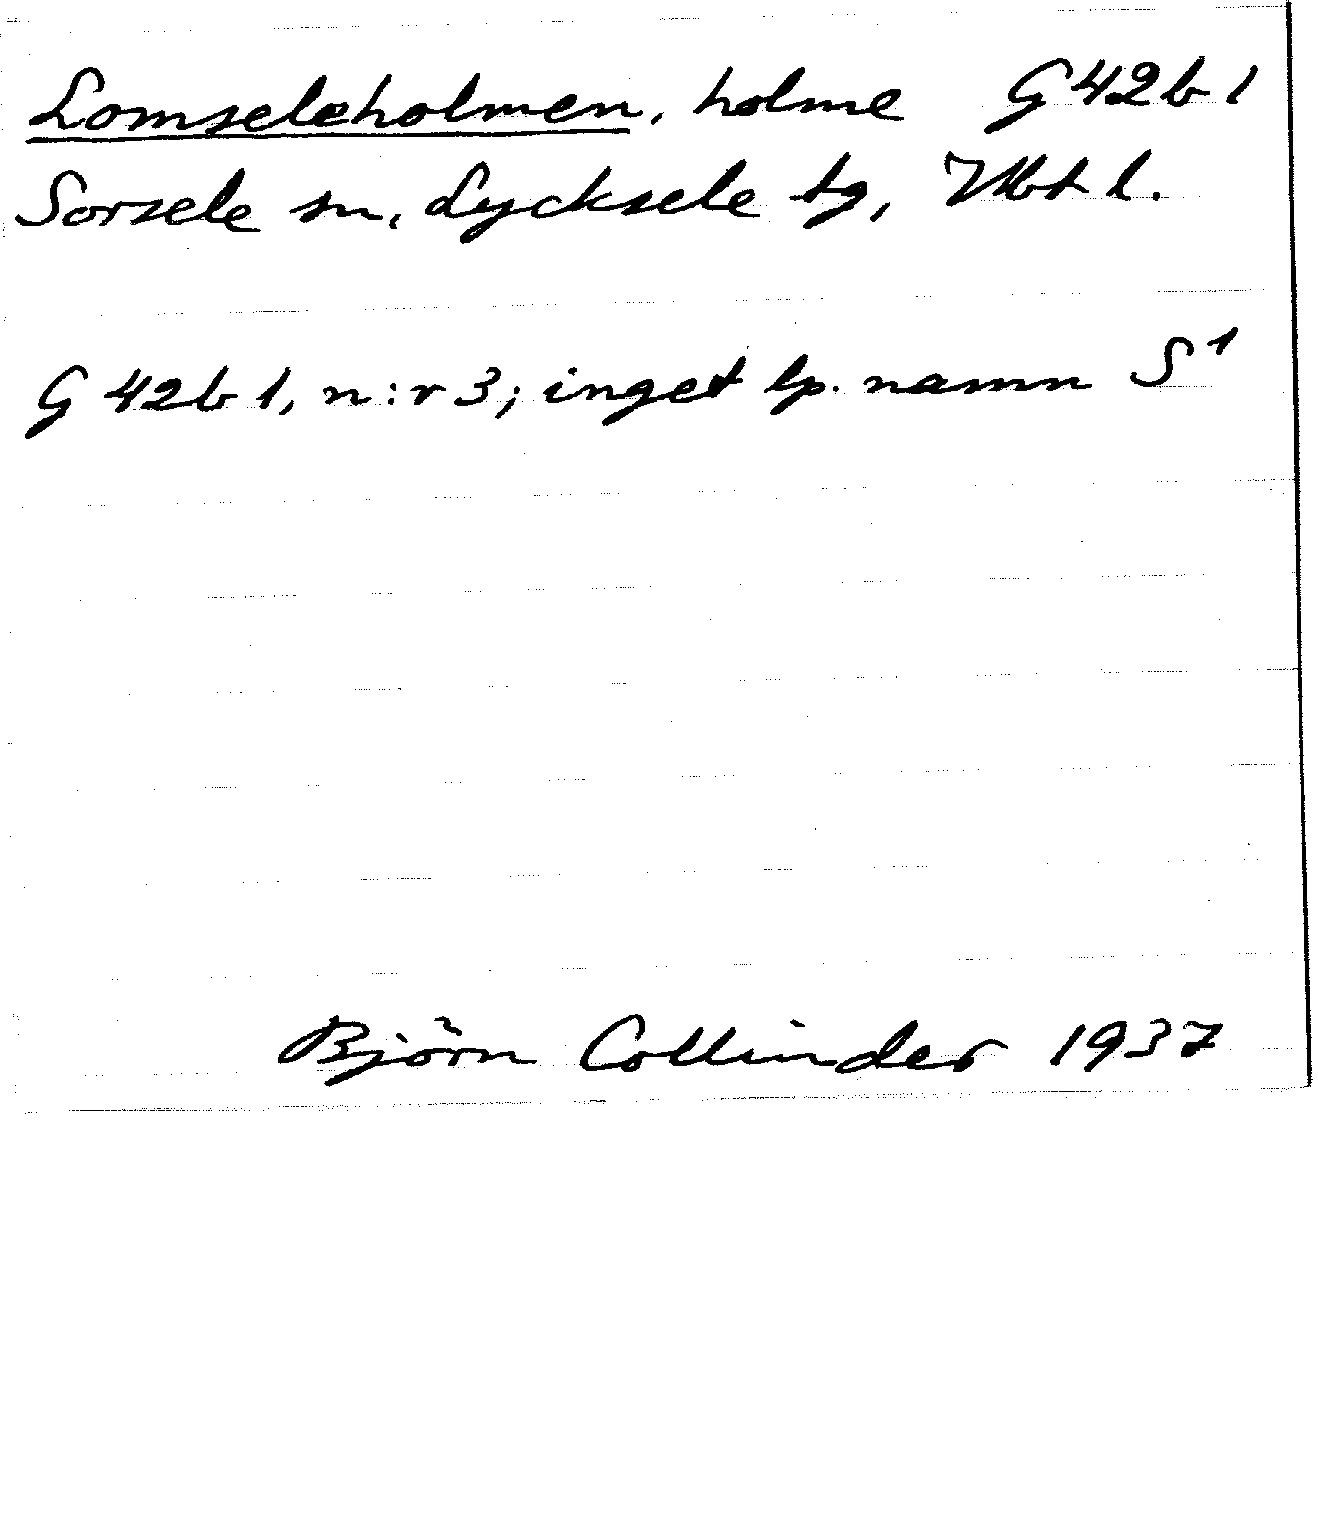 Lomseleholmen, holme G 42 b 1
Sorsele sn, Lycksele tg, Vbt l.
G 42 b 1, n:r 3; inget lp. namn S¹
Björn Collinder 1937